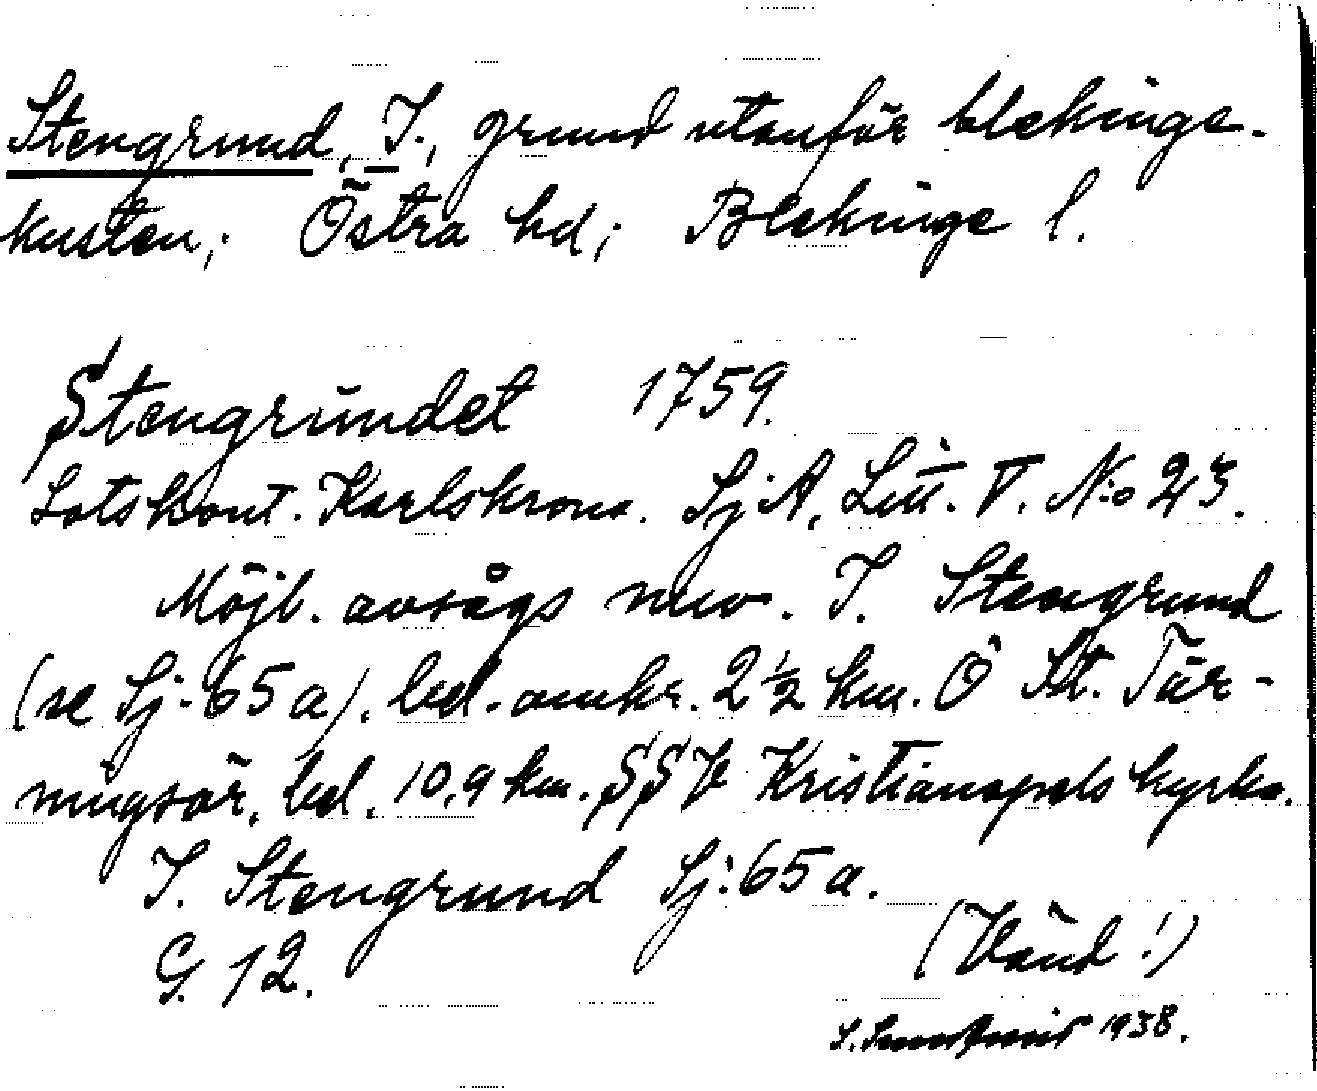 Stengrund, I., grund utanför blekinge-
kusten; Östra hd; Blekinge l.
Stengrundet 1759.
Lotskont. Karlskrona. SjA, Litt. V. N:o 23.
Möjl. avsågs nuv. I. Stengrund
(se Sj. 65 a). bel. omkr. 2 ½ km. Ö St. Tär-
ningsör, bel. 10,9 km. SSV Kristianopels kyrka.
I. Stengrund Sj: 65 a.
G. 12.
(Vänd!)
1938.